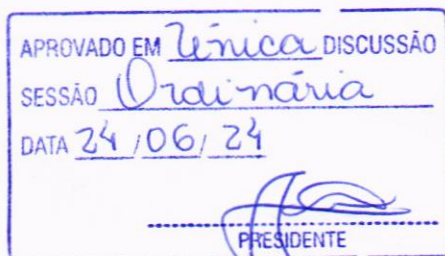 APROVADO EM Única DISCUSSÃO
SESSÃO Ordinária
DATA 24 / 06 / 24
PRESIDENTE